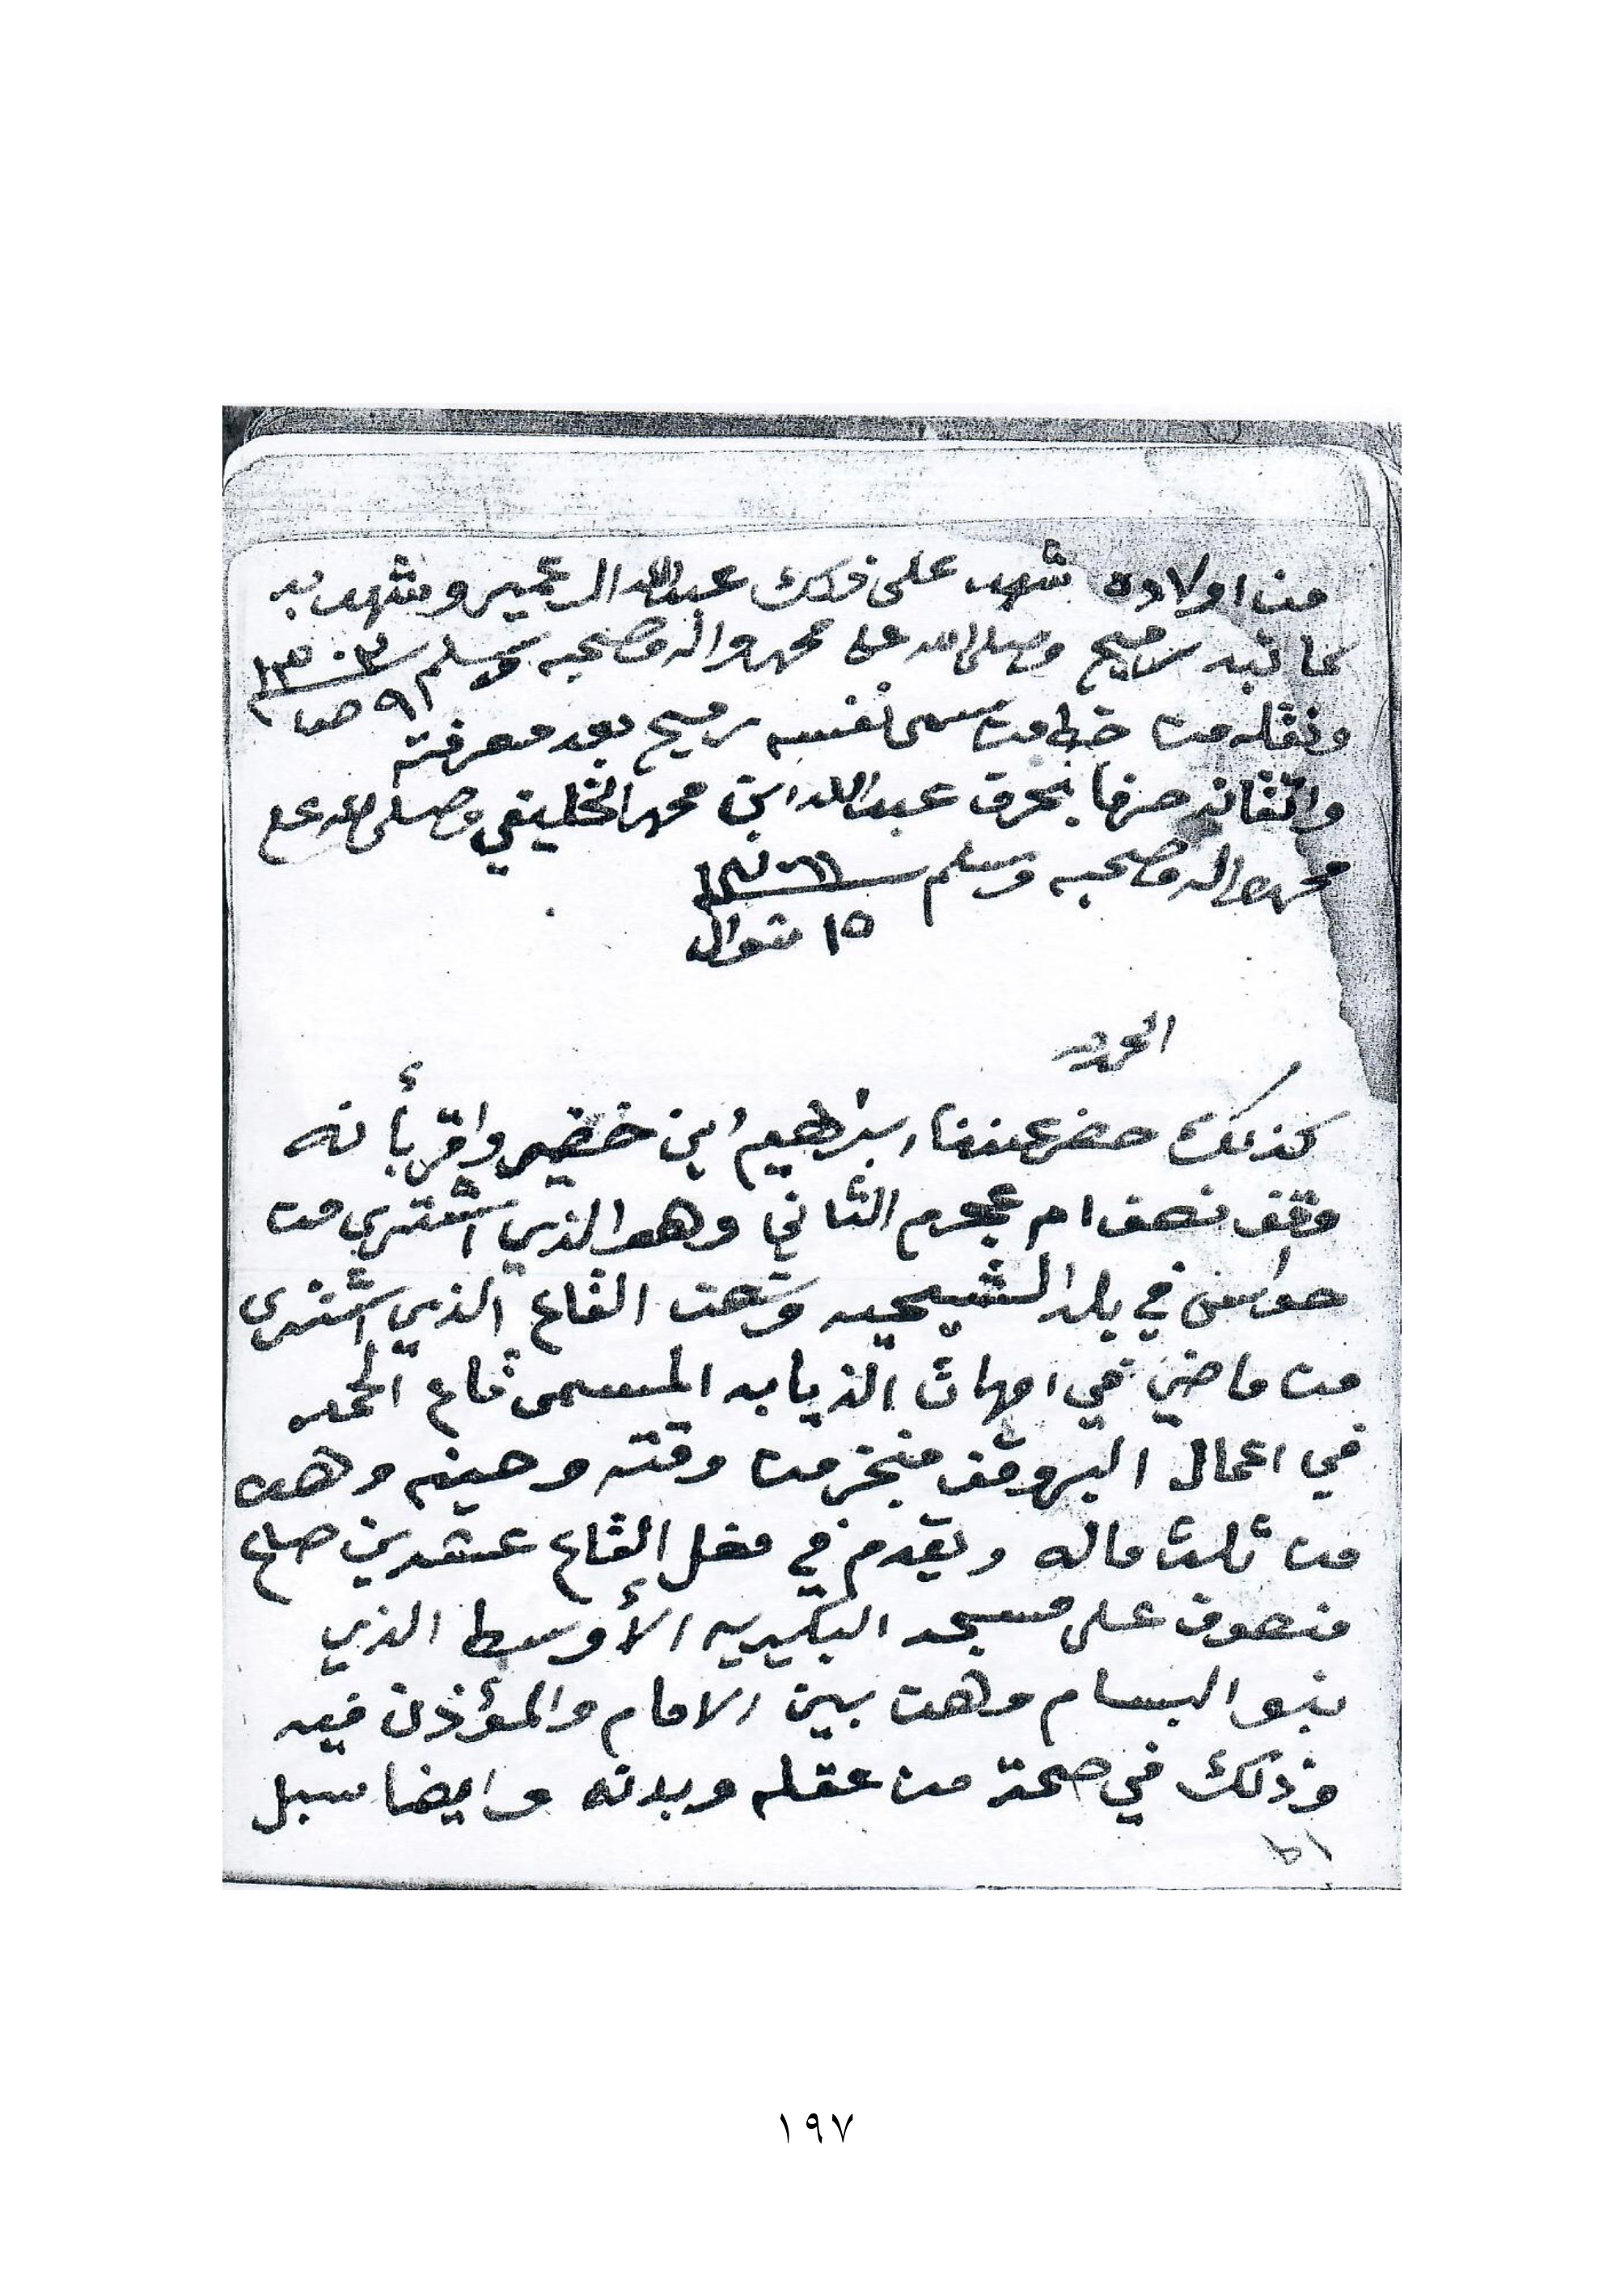 من اولاده شهد على ذلك عبدالله الرعمير وشهد به
كاتبه رميح وصلى الله على محمد واله وصحبه وسلم ١٣٠٣
ونقله من خط من سمى نفسه رميح بعد معرفته ٩ صفر
واتقانه حرفا بحرف عبدالله ابن محمد الخليفي وصلى الله على
محمد واله وصحبه وسلم
١٥ شوال
الحمد لله
كذلك حضر عندنا ابراهيم ابن خضير واقر بأنه
وقف نصف ام عجرم الثاني وهو الذي اشترى من
في بلد الشيحيه القاع الذي اشترى
من ماضي في امهات الذيابه المسمى قاع الحمد
في اعمال البر وقف منجز من وقته وحينه وهن
من ثلث ماله ويقدم في مغل القاع عشرين صاع
منصوف على مسجد البكيريه الأوسط الذي
بنو البسام وهن بين الامام والمؤذن فيه
وذلك في صحة من عقله وبدنه وايضا سبل
١٩٧